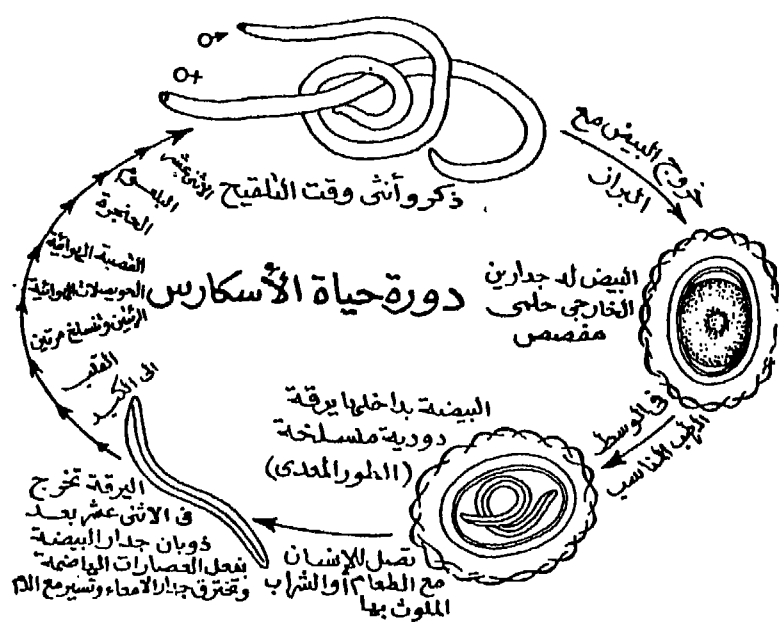 ذكر وأنثى وقت التلقيح
خروج البيض مع
البراز
البيض له جدارين
الخارجى حلمى
مفصص
فى الوسط
الرطب المناسب
البيضة بداخلها يرقة
دودية منسلخة
(الطور المعدى)
تصل للإنسان
مع الطعام أو الشراب
الملوث بها
اليرقة تخرج
فى الاثنى عشر بعد
ذوبان جدار البيضة
بفعل العصارات الهاضمة
وتخترق جدار الامعاء وتسير مع الدم
الى الكبد
القلب
الرئتين وتنسلخ مرتين
الحويصلات الهوائية
القصبة الهوائية
الحنجرة
البلعوم
الأثنى عشر
دورة حياة الأسكارس